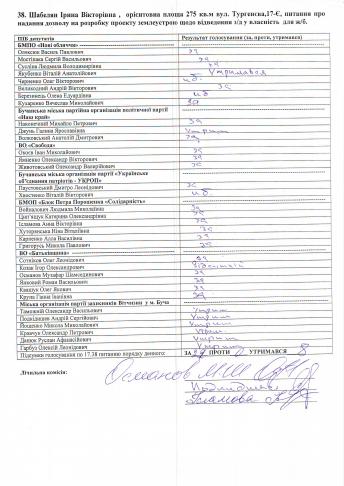 38. Шабелян Ірина Вікторівна , орієнтовна площа 275 кв.м вул. Тургєнєва,17-Є, питання про
надання дозволу на розробку проекту землеустрою щодо відведення з/д у власність для ж/б.
ПІБ депутатів Результат голосування (за, проти, утримався)
БМПО «Нові обличчя»
Олексюк Василь Павлович за
Мостіпака Сергій Васильович за
Суслова Людмила Володимирівна за
Якубенко Віталій Анатолійович Утримався
Черненко Олег Вікторович н.б.
Великодний Андрій Вікторович за
Березинець Олена Едуардівна н.б
Кухаренко Вячеслав Миколайович за
Бучанська міська партійна організація політичної партії
«Наш край»
Наконечний Михайло Петрович за
Джусь Галина Ярославівна утрим
Волковський Анатолій Дмитрович за
ВО «Свобода»
Окосв Іван Миколайович за
Яненко Олександр Вікторович за
Животовський Олександр Валерійович за
Бучанська міська організація партії «Українське
об'єднання патріотів - УКРОП»
Паустовський Дмитро Леонідович за
Хвостенко Віталій Вікторович н.б.
БМОП «Блок Петра Порошенка «Солідарність»
Войналович Людмила Миколаївна за
Цип'ящук Катерина Олександрівна за
Ісламова Анна Вікторівна за
Хуторянська Ніна Віталіївна за
Карпенко Алла Василівна за
Григорусь Микола Павлович за
ВО «Батьківщина»
Сотніков Олег Леонідович за
Козак Ігор Олександрович Відсутній
Османов Музафар Шамседінович за
Яновий Роман Васильович за
Квашук Олег Якович за
Крупа Ганна Іванівна за
Міська організація партії захисників Вітчизни у м. Буча
Таможній Олександр Васильович утрим
Підвінцев Андрій Сергійович утрим
Йощенко Микола Олександрович утрим
Кравчук Олександр Петрович утрим
Данюк Руслан Афанасійович утрим
Гарбуз Олексій Леонідович утрим
Підсумки голосування по 17.38 питанню порядку денного: ЗА ПРОТИ УТРИМАВСЯ 8
Лічильна комісія: Османов М.Ш
Ісламова